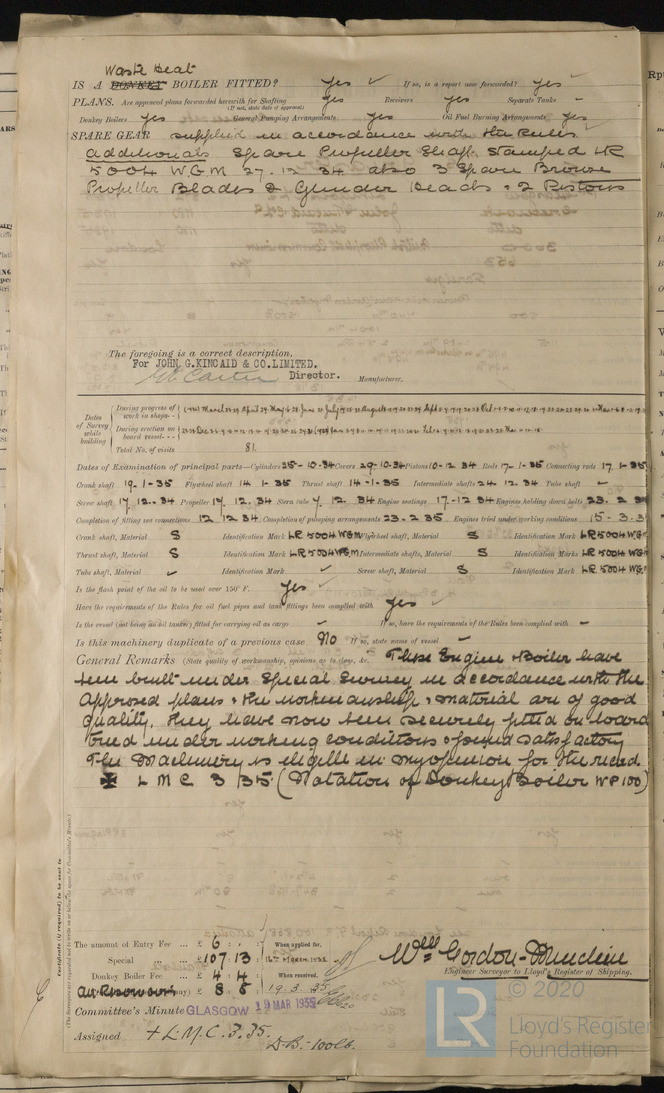 Waste Heat
IS A DONKEY BOILER FITTED? Yes ✓ If so, is a report now forwarded? Yes -
PLANS. Are approved plans forwarded herewith for Shafting Yes Receivers Yes Separate Tanks -
(If not, state date of approval)
Donkey Boilers Yes General Pumping Arrangements Yes Oil Fuel Burning Arrangements Yes
SPARE GEAR supplied in accordance with the Rules
additionals Spare Propeller Shaft Stamped LR
5004 WGM 27.12.34 also 3 Spare Bronze
Propeller Blades 2 Cylinder Heads & 2 Pistons
The foregoing is a correct description,
For JOHN G. KINCAID & CO. LIMITED.
Director. Manufacturer.
Dates of Survey while building
During progress of work in shops - -
During erection on board vessel - - -
Total No. of visits 81.
Dates of Examination of principal parts—Cylinders 25-10-34 Covers 29-10-34 Pistons 10-12-34 Rods 17-1-35 Connecting rods 17.1-35
Crank shaft 19-1-35 Flywheel shaft 14-1-35 Thrust shaft 14-1-35 Intermediate shafts 24.12.34 Tube shaft -
Screw shaft 17.12.34 Propeller 17.12.34 Stern tube 7.12.34 Engine seatings 17-12-34 Engines holding down bolts 23.2.35
Completion of fitting sea connections 12 12 34 Completion of pumping arrangements 23-2 35 Engines tried under working conditions 15-3-3
Crank shaft, Material S Identification Mark LR 5004 WGM Flywheel shaft, Material S Identification Mark LR 5004 WG
Thrust shaft, Material S Identification Mark LR 5004 WGM Intermediate shafts, Material S Identification Marks LR 5004 WG
Tube shaft, Material ✓ Identification Mark ✓ Screw shaft, Material S Identification Mark LR 5004 WG
Is the flash point of the oil to be used over 150° F. Yes ✓
Have the requirements of the Rules for oil fuel pipes and tank fittings been complied with Yes ✓
Is the vessel (not being an oil tanker) fitted for carrying oil as cargo - If so, have the requirements of the Rules been complied with -
Is this machinery duplicate of a previous case No If so, state name of vessel -
General Remarks (State quality of workmanship, opinions as to class, &c. These Engines & Boiler have
been built under Special Survey in accordance with the
Approved plans & the workmanship & material are of good
quality, they have now been securely fitted on board
tried under working conditions & found satisfactory
The Machinery is eligible in my opinion for the record
✠ LMC 3/35. (Notation of Donkey Boiler WP 100)
Certificate (if required) to be sent to
(The Surveyors are requested not to write on or below the space for Committee's Minute.)
The amount of Entry Fee ... £ 6 : - : When applied for,
Special ... ... £ 107 : 13 :
Donkey Boiler Fee ... £ 4 : 4 : When received,
Air Reservoirs £ 8 : 8 : 19.3.35
Wm Gordon-Murdein
Engineer Surveyor to Lloyd's Register of Shipping.
Committee's Minute GLASGOW 19 MAR 1935
Assigned + L.M.C. 3.35.
D.B. - 100 lb.
© 2020
LR
Lloyd's Register
Foundation